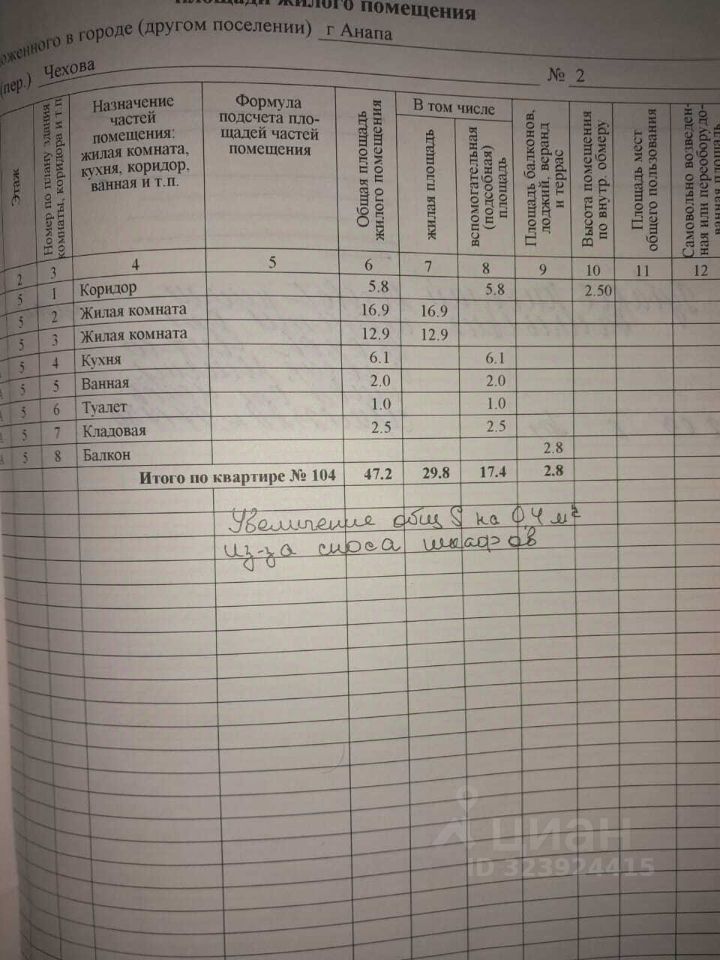 площади жилого помещения
оженного в городе (другом поселении) г Анапа
(пер.) Чехова № 2
Этаж
Номер по плану здания комнаты, коридора и т п
Назначение
частей
помещения:
жилая комната,
кухня, коридор,
ванная и т.п.
Формула
подсчета пло-
щадей частей
помещения
Общая площадь
жилого помещения
В том числе
жилая площадь
вспомогательная
(подсобная)
площадь
Площадь балконов,
лоджий, веранд
и террас
Высота помещения
по внутр. обмеру
Площадь мест
общего пользования
Самовольно возведен-
ная или переоборудо-
ванная площадь
2 3 4 5 6 7 8 9 10 11 12
5 1 Коридор 5.8 5.8 2.50
5 2 Жилая комната 16.9 16.9
5 3 Жилая комната 12.9 12.9
5 4 Кухня 6.1 6.1
5 5 Ванная 2.0 2.0
5 6 Туалет 1.0 1.0
5 7 Кладовая 2.5 2.5
5 8 Балкон 2.8
Итого по квартире № 104 47.2 29.8 17.4 2.8
Увеличение общ S на 0,4 м²
из-за сноса шкафов
циан
ID 323924415